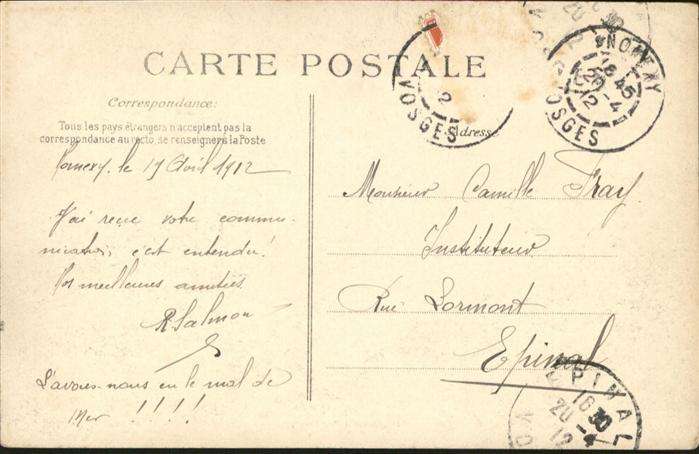 CARTE POSTALE
Correspondance:
Tous les pays étrangers n'acceptent pas la
correspondance au recto, se renseigner à la Poste
Adresse
Nomexy, le 19 Avril 1912
J'ai reçue votre commu-
nication, c'est entendu!
Vos meilleures amitiés
R Salmon
L'avons-nous eu le mal de
mer !!!!
Monsieur Camille Fray
Instituteur
Rue Lormont
Epinal
2
VOSGES
NOMEXY
18 45
20 -4
12
VOSGES
EPINAL
18 30
20 -4
12